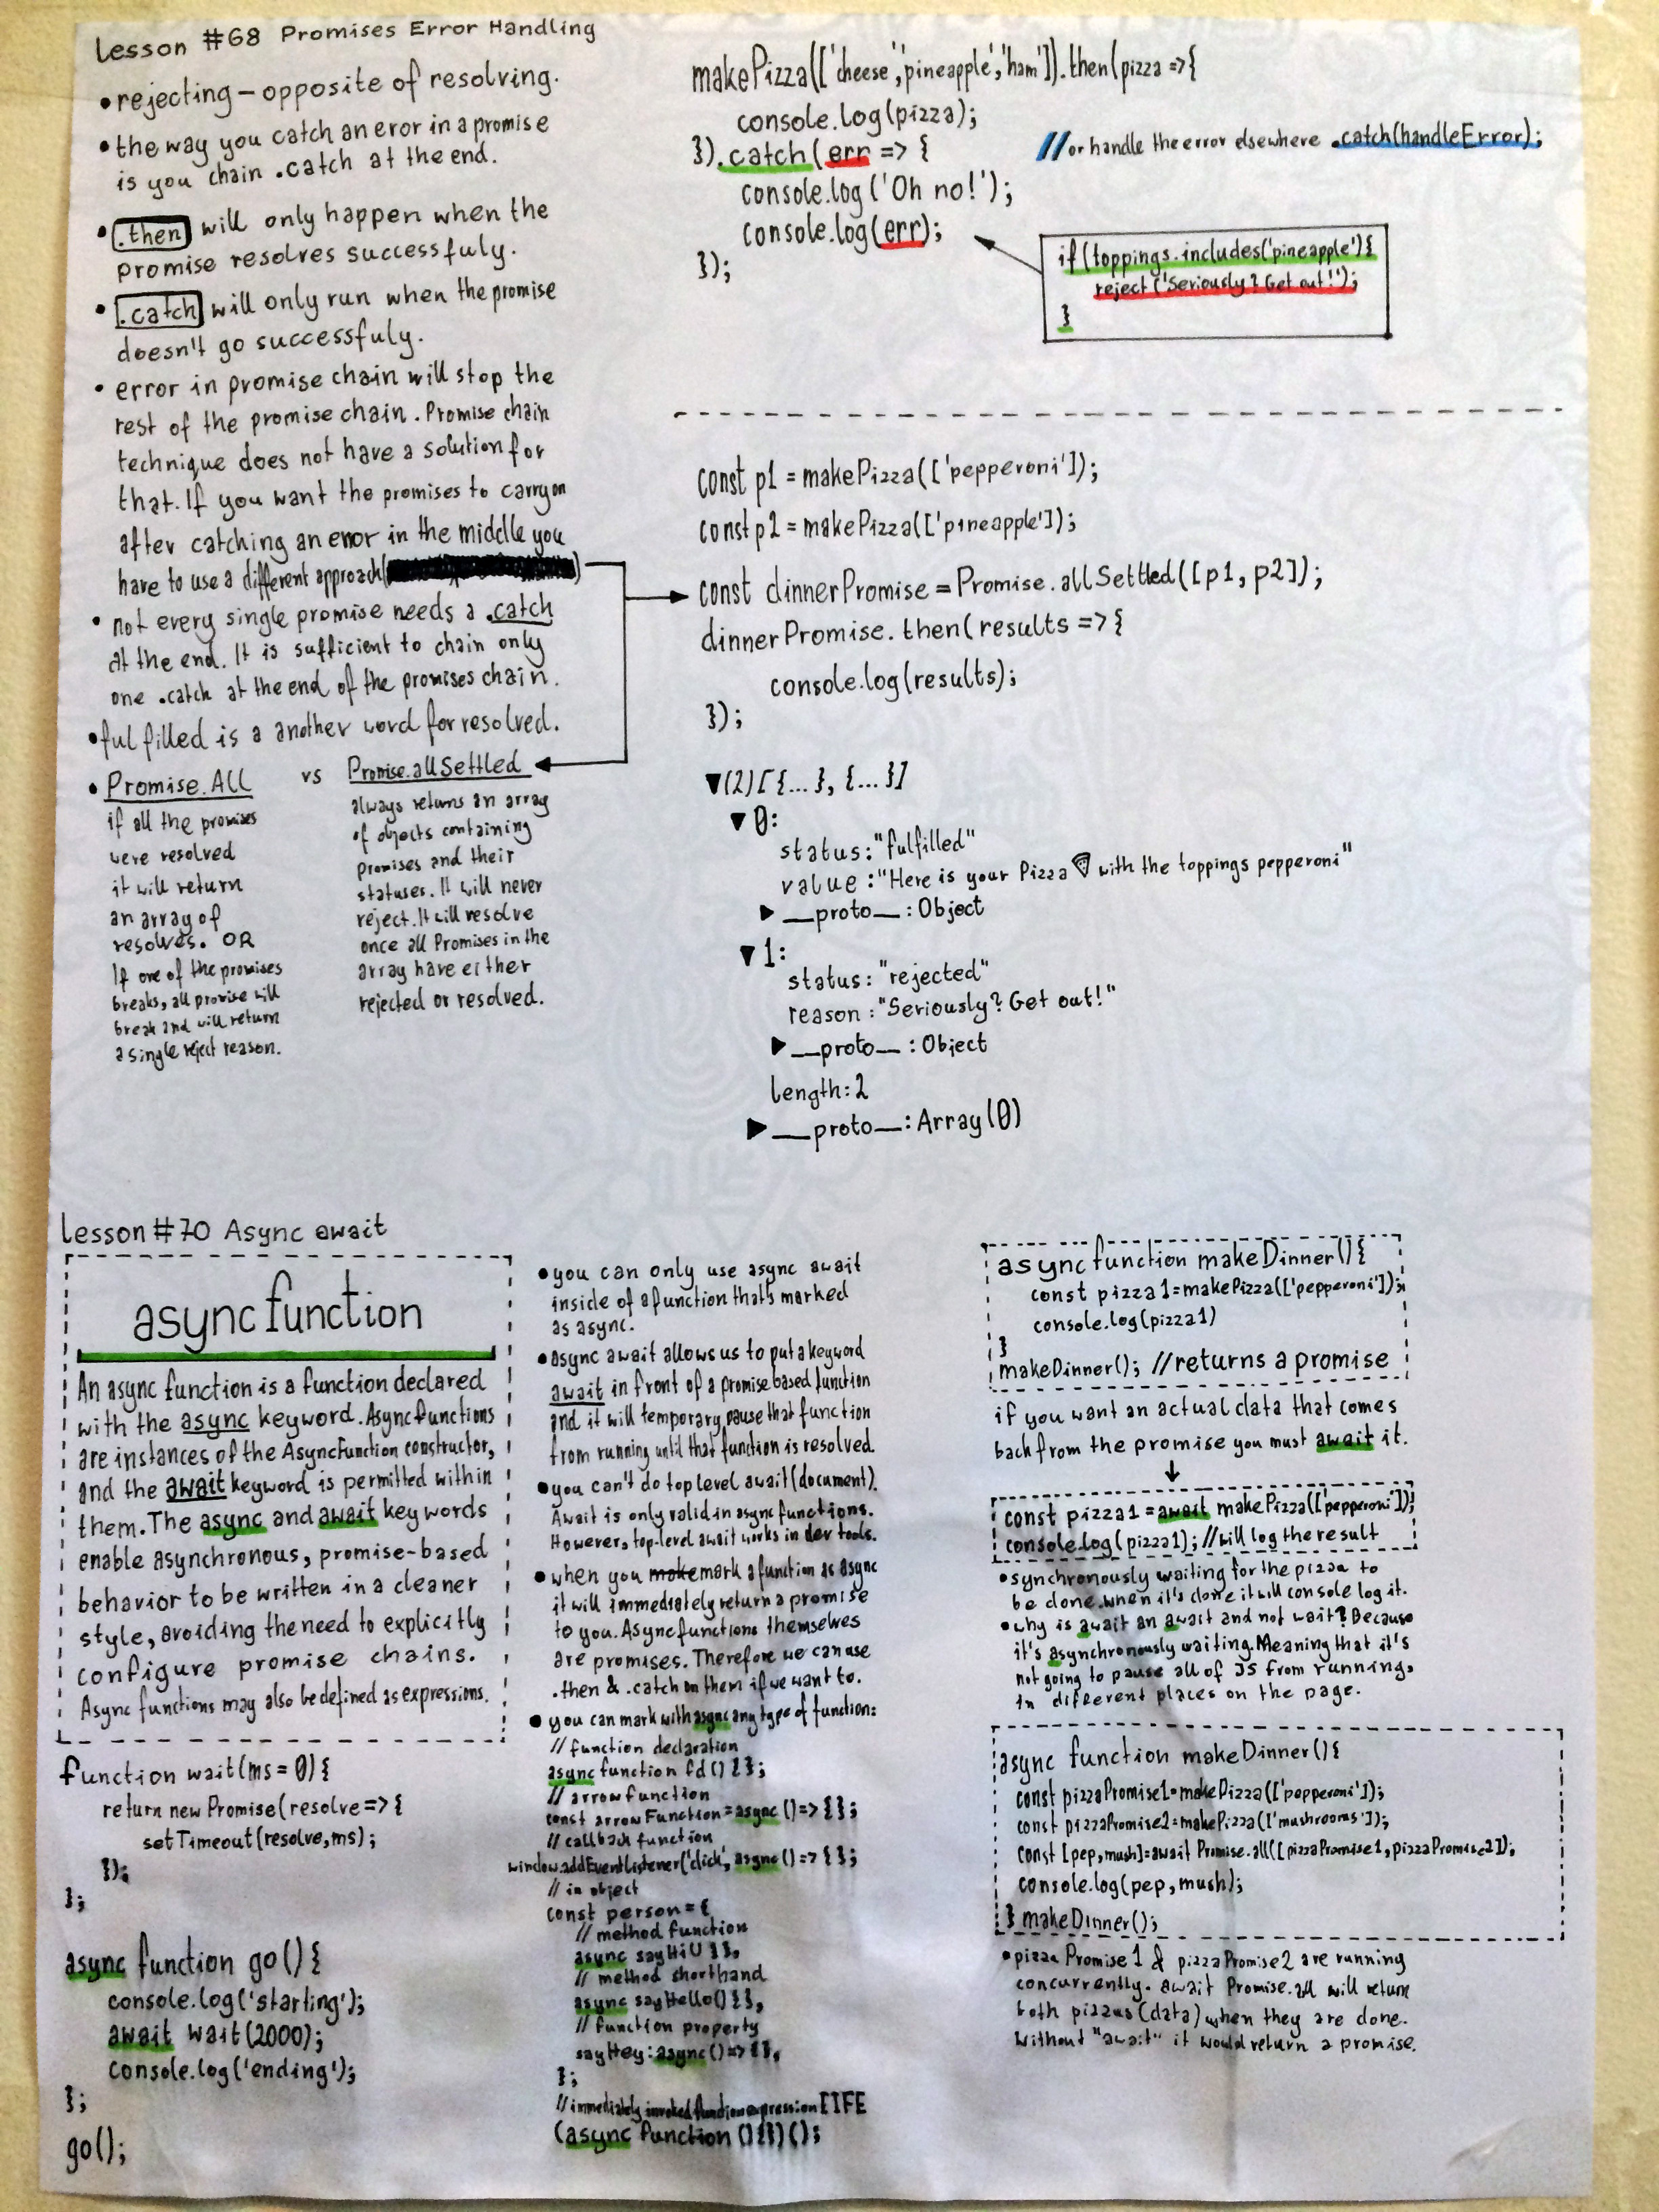 Lesson #68 Promises Error Handling
• rejecting – opposite of resolving.
• the way you catch an eror in a promise
is you chain .catch at the end.
• .then will only happen when the
promise resolves successfuly.
• .catch will only run when the promise
doesn't go successfuly.
• error in promise chain will stop the
rest of the promise chain. Promise chain
technique does not have a solution for
that. If you want the promises to carry on
after catching an error in the middle you
have to use a different approach( )
• not every single promise needs a .catch
at the end. It is sufficient to chain only
one .catch at the end of the promises chain.
• fulfilled is a another word for resolved.
• Promise.All vs Promise.allSettled
if all the promises
were resolved
it will return
an array of
resolves. OR
If one of the promises
breaks, all promise will
break and will return
a single reject reason.
always returns an array
of objects containing
promises and their
statuses. It will never
reject. It will resolve
once all Promises in the
array have either
rejected or resolved.
makePizza(['cheese','pineapple','ham']).then(pizza =>{
console.log(pizza);
}).catch(err => {
//or handle the error elsewhere .catch(handleError);
console.log('Oh no!');
console.log(err);
});
if(toppings.includes('pineapple'){
reject('Seriously? Get out!');
}
const p1 = makePizza(['pepperoni']);
const p2 = makePizza(['pineapple']);
const dinnerPromise = Promise.allSettled([p1, p2]);
dinnerPromise.then(results =>{
console.log(results);
});
▼(2)[{...}, {...}]
▼0:
status: "fulfilled"
value : "Here is your Pizza 🍕 with the toppings pepperoni"
▶ __proto__: Object
▼1:
status: "rejected"
reason : "Seriously? Get out!"
▶ __proto__: Object
length: 2
▶ __proto__: Array(0)
Lesson #70 Async await
async function
An async function is a function declared
with the async keyword. Async functions
are instances of the AsyncFunction constructor,
and the await keyword is permitted within
them. The async and await keywords
enable asynchronous, promise-based
behavior to be written in a cleaner
style, avoiding the need to explicitly
configure promise chains.
Async functions may also be defined as expressions.
function wait(ms = 0){
return new Promise(resolve=>{
setTimeout(resolve,ms);
});
};
async function go(){
console.log('starting');
await wait(2000);
console.log('ending');
};
go();
• you can only use async await
inside of a function that's marked
as async.
• async await allows us to put a keyword
await in front of a promise based function
and it will temporary pause that function
from running until that function is resolved.
• you can't do top level await (document).
Await is only valid in async functions.
However, top-level await works in dev tools.
• when you make mark a function as async
it will immediately return a promise
to you. Async functions themselves
are promises. Therefore we can use
.then & .catch on them if we want to.
• you can mark with async any type of function:
// function declaration
async function fd(){};
// arrow function
const arrowFunction=async ()=>{};
// callback function
window.addEventListener('click', async()=>{};
// in object
const person={
// method function
async sayHi(){},
// method shorthand
async sayHello(){},
// function property
sayHey: async()=>{},
};
// immediately invoked function expression IIFE
(async function(){})();
async function makeDinner(){
const pizza1=makePizza(['pepperoni']);
console.log(pizza1)
}
makeDinner(); //returns a promise
if you want an actual data that comes
back from the promise you must await it.
↓
const pizza1 =await makePizza(['pepperoni']);
console.log(pizza1); //will log the result
• synchronously waiting for the pizza to
be done. when it's done it will console log it.
• why is await an await and not wait? Because
it's asynchronously waiting. Meaning that it's
not going to pause all of JS from running,
in different places on the page.
async function makeDinner(){
const pizzaPromise1=makePizza(['pepperoni']);
const pizzaPromise2=makePizza(['mushrooms']);
const [pep,mush]=await Promise.all([pizzaPromise1,pizzaPromise2]);
console.log(pep,mush);
} makeDinner();
• pizzaPromise1 & pizzaPromise2 are running
concurrently. await Promise.all will return
both pizzas (data) when they are done.
without "await" it would return a promise.